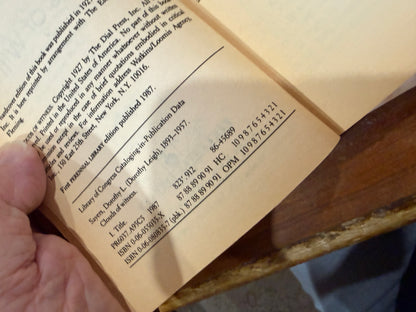 hardcover edition of this book was published in 192
It is here reprinted by arrangement with The E
Copyright 1927 by The Dial Press, Inc. All
Printed in the United States of America. No part of this book
or reproduced in any manner whatsoever without written
except in the case of brief quotations embodied in critical
and reviews. For information address Watkins/Loomis Agency,
150 East 35th Street, New York, N.Y. 10016.
First PERENNIAL LIBRARY edition published 1987.
Library of Congress Cataloging-in-Publication Data
Sayers, Dorothy L. (Dorothy Leigh), 1893-1957.
Clouds of witness.
I. Title.
PR6037.A95C5 1987 823'.912 86-45689
ISBN 0-06-055035-X 87 88 89 90 91 HC 10 9 8 7 6 5 4 3 2 1
ISBN 0-06-080835-7 (pbk.) 87 88 89 90 91 OPM 10 9 8 7 6 5 4 3 2 1